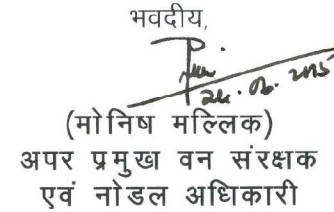 भवदीय,
(मोनिष मल्लिक)
अपर प्रमुख वन संरक्षक
एवं नोडल अधिकारी